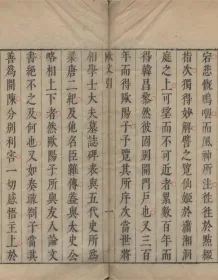 宕悲慨嗚咽而風神所注往往於點綴
指次獨得妙解譬之覽仙姬於瀟湘洞
庭之上可望而不可近者累數百年而
得韓昌黎然彼固別開門戶也又三百
年而得歐陽子予覽其所序次當世將
歐文引 一
相學士大夫墓誌碑表與五代史所為
梁唐二紀及他名臣雜傳蓋與太史公
略相上下者然
書絕不之及何也又如奏疏劄子當其
善為開陳分別利害一切感悟主上於